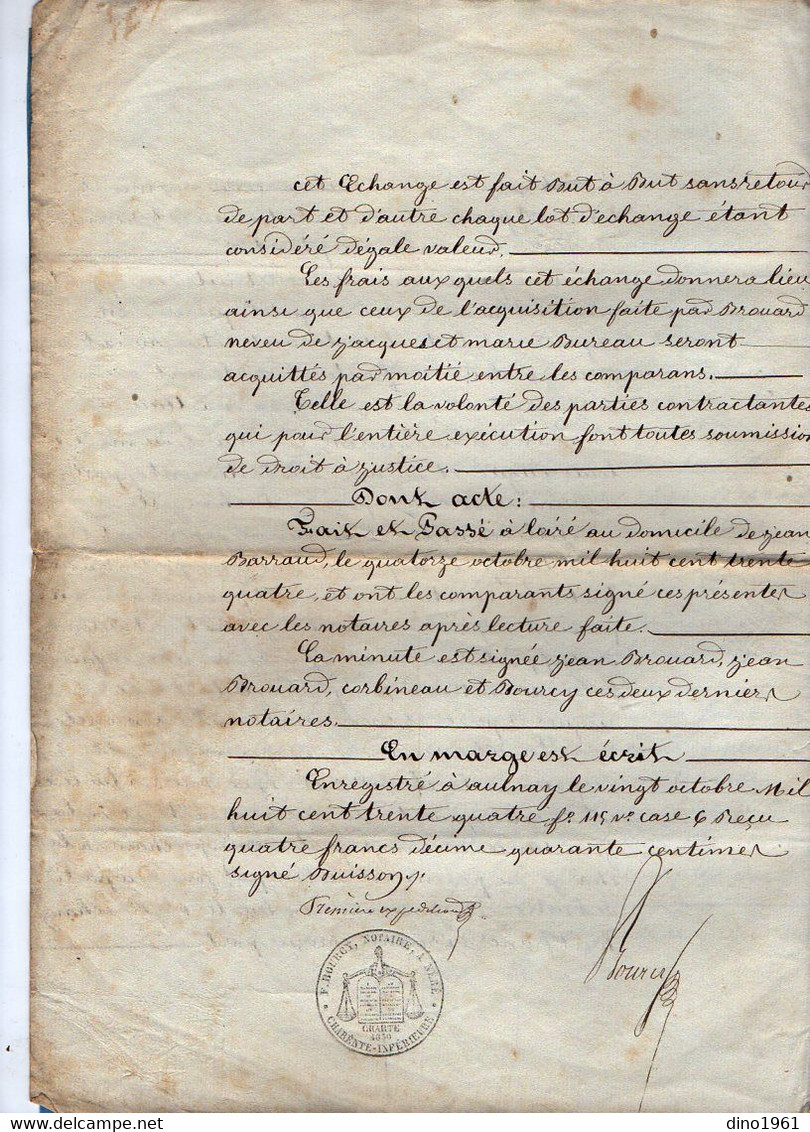 cet Echange est fait But à But sans retour
de part et d'autre chaque lot d'echange étant
considéré dégale valeur.
Les frais aux quels cet échange donnera lieu
ainsi que ceux de l'acquisition faite par Brouard
neveu de jacques et marie Bureau seront
acquittés par moitié entre les comparans.
Telle est la volonté des parties contractantes
qui pour l'entière exécution font toutes soumission
de droit à justice.
Dont acte:
Fait et Passé à loiré au domicile de jean
Barraud, le quatorze octobre mil huit cent trente
quatre, et ont les comparants signé ces présentes
avec les notaires après lecture faite.
La minute est signée jean Brouard, jean
Brouard, corbineau et Bourcy ces deux derniers
notaires.
En marge est écrit
Enregistré à aulnay le vingt octobre Mil
huit cent trente quatre fo. 115 vo. case 6 Reçu
quatre francs décime quarante centimes
signé Buisson
Première expédition
Bourcy
F. BOURCY, NOTAIRE, A NÉRÉ
CHARTE
1830
CHARENTE-INFÉRIEURE
dino1961